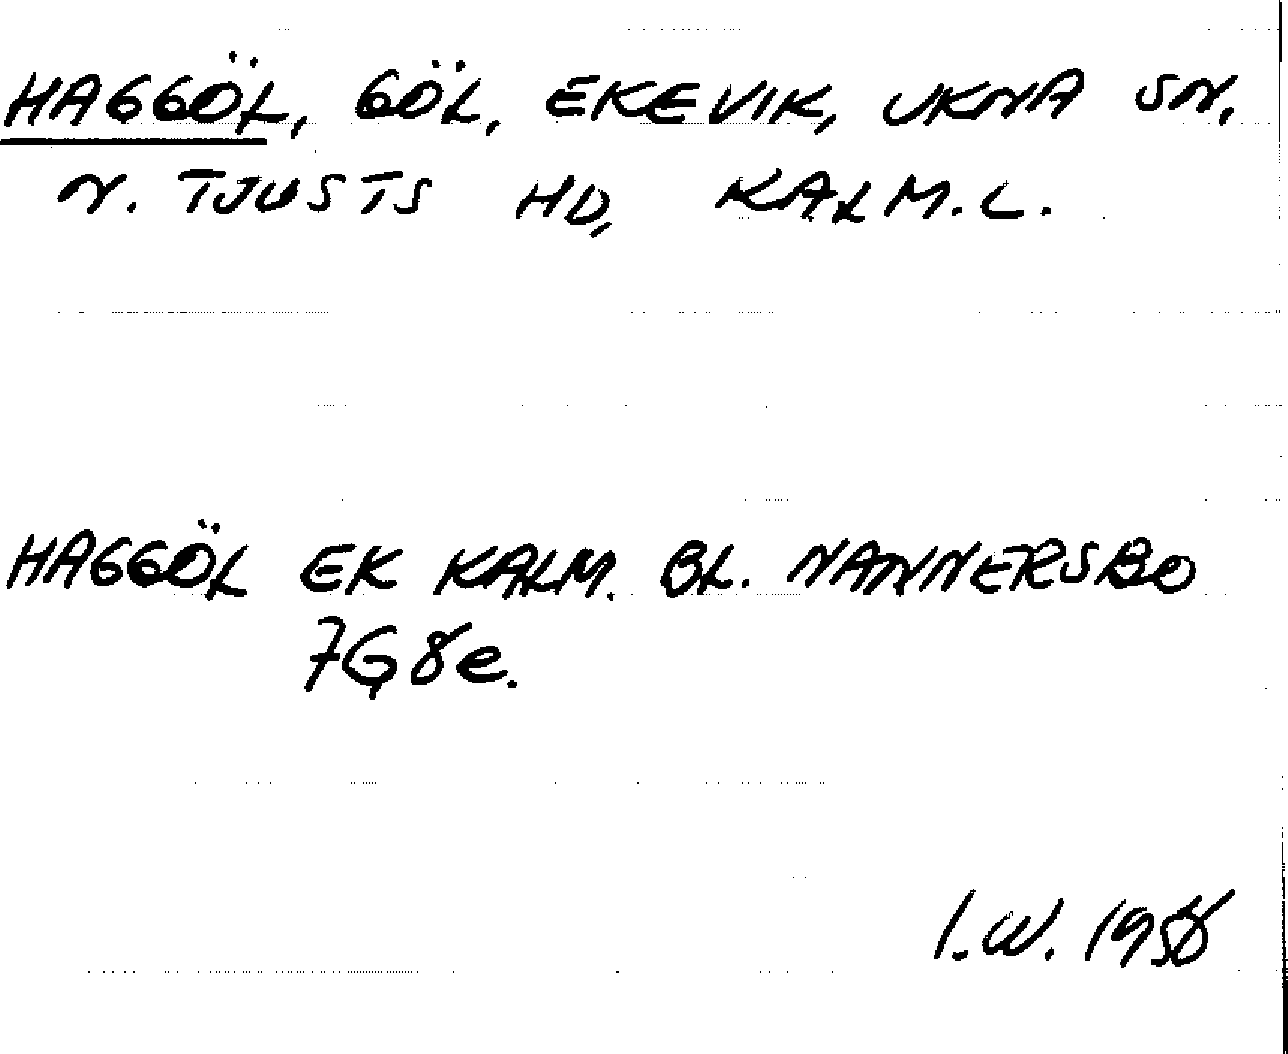 HAGGÖL, GÖL, EKEVIK, UKNA SN,
N. TJUSTS HD, KALM. L.
HAGGÖL EK KALM. BL. NANNERSBO
7G8e.
I.W. 1958